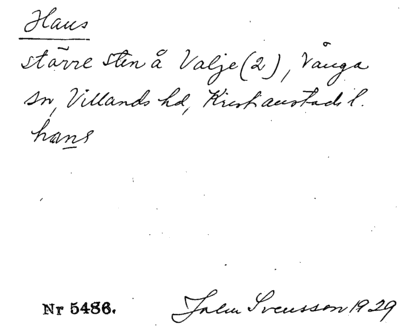 Hans
större sten å Valje (2), Vånga
sn, Villands hd, Kristianstads l.
hans
Nr 5486. John Svensson 1929